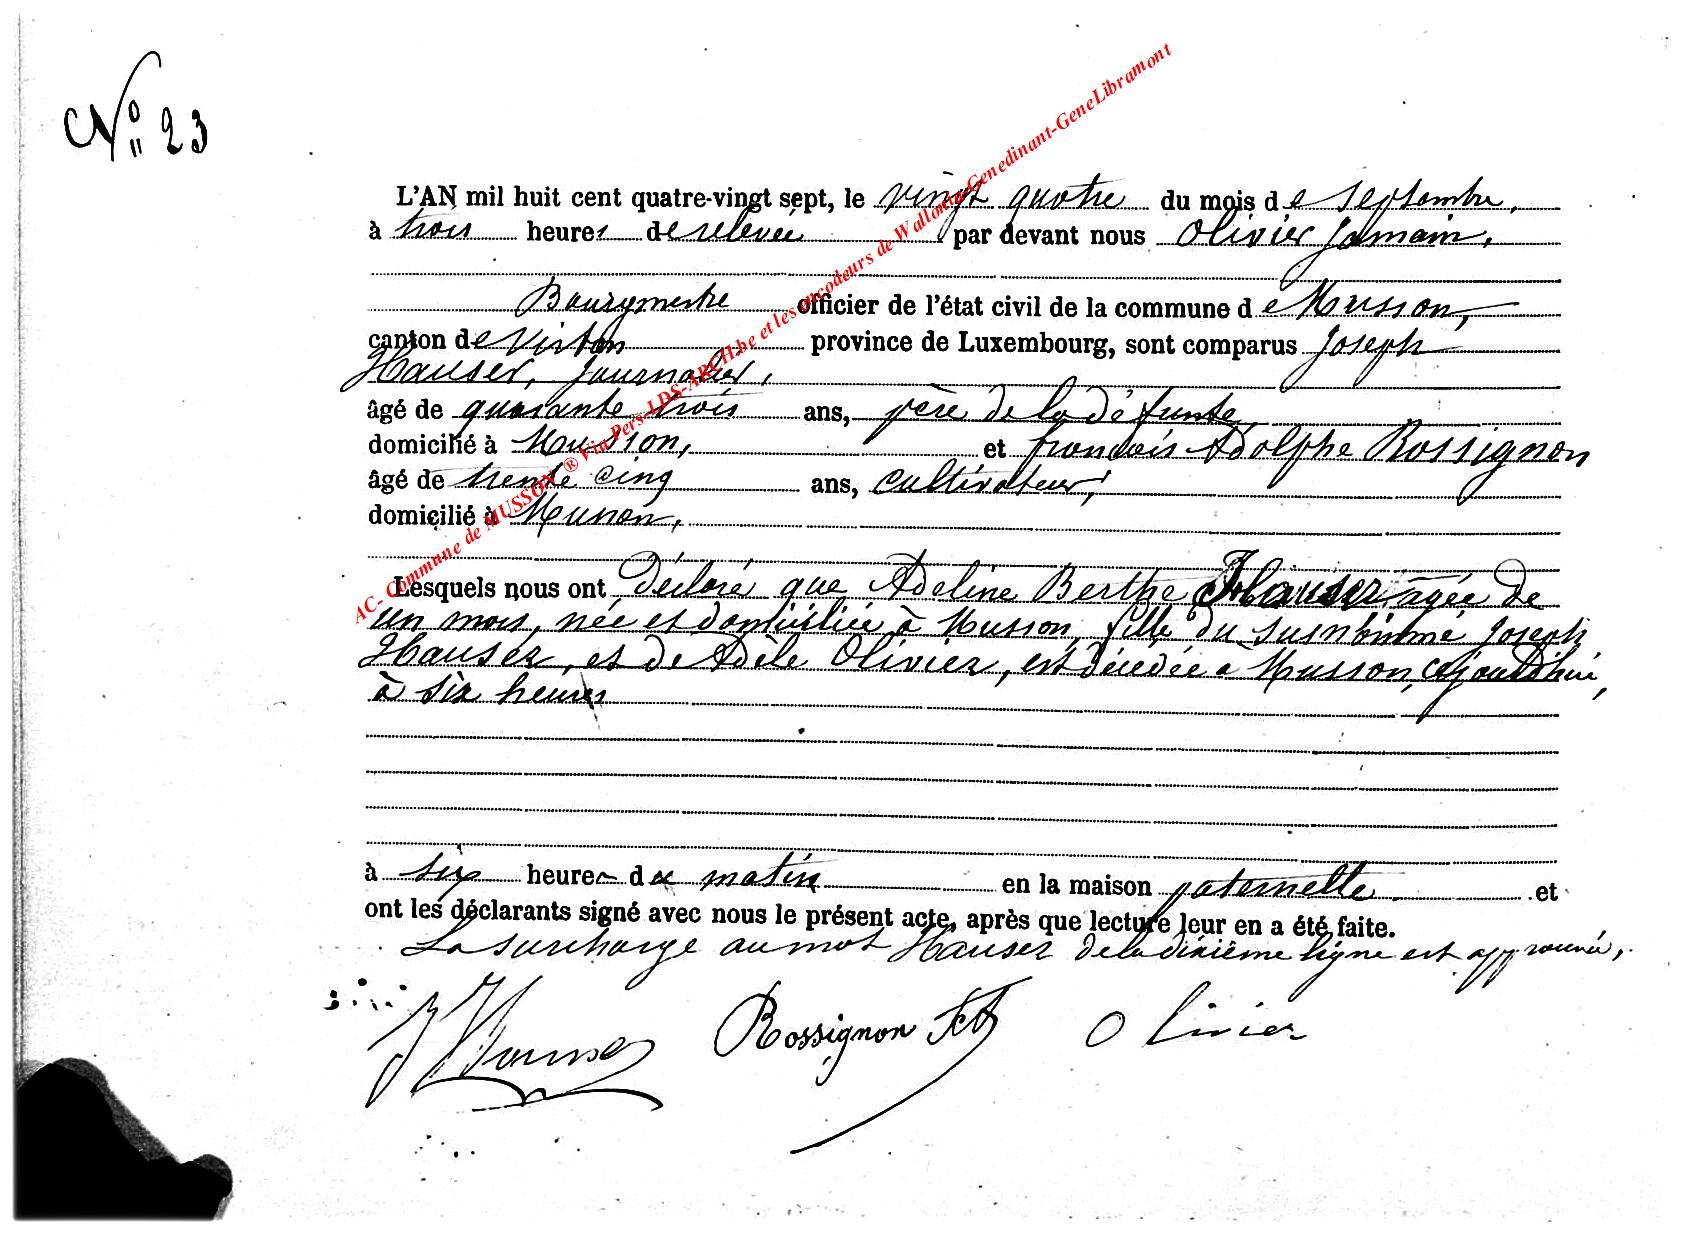 No 23
L'AN mil huit cent quatre-vingt sept, le vingt quatre du mois de Septembre,
à trois heures de relevée par devant nous Olivier Jamain,
Bourgmestre officier de l'état civil de la commune de Musson,
canton de Virton province de Luxembourg, sont comparus Joseph
Hauser, journalier,
âgé de quarante trois ans, père de la défunte
domicilié à Musson, et francois Adolphe Rossignon
âgé de trente cinq ans, cultivateur,
domicilié à Musson,
Lesquels nous ont déclaré que Adeline Berthe Hauser agée de
un mois, née et domiciliée à Musson, fille du susnommé Joseph
Hauser, et de Adèle Olivier, est décédée à Musson, cejourd'hui,
à six heures
à six heures du matin en la maison paternelle et
ont les déclarants signé avec nous le présent acte, après que lecture leur en a été faite.
La surcharge au mot Hauser de la dixième ligne est approuvée,
J Hauser Rossignon FA Olivier
AC- Commune de MUSSON ® Via Pers-LDS-ARCH.be et les encodeurs de Wallonia-Genedinant-GeneLibramont